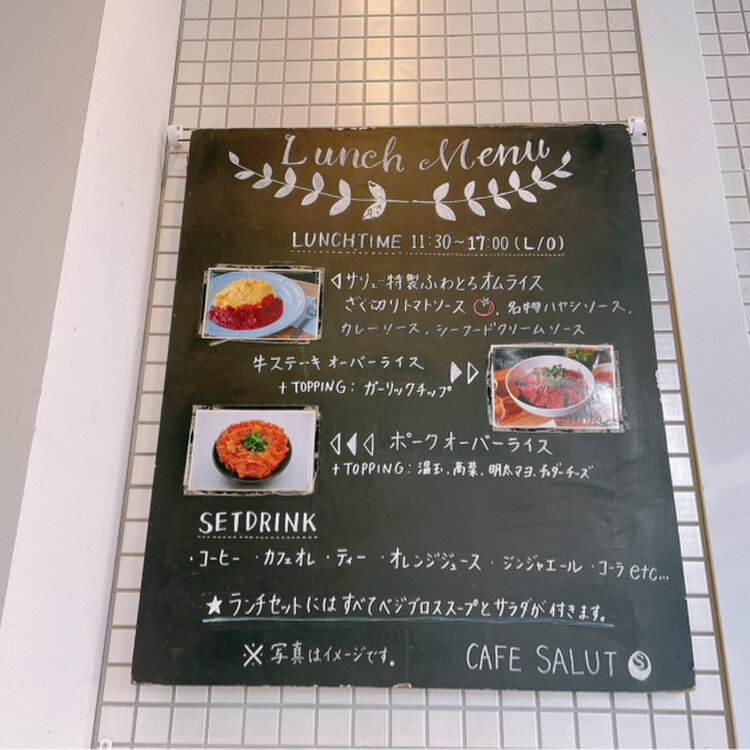 Lunch Menu
LUNCHTIME 11:30~17:00 (L/O)
サリュー特製ふわとろオムライス
ざく切りトマトソース、名物ハヤシソース、
カレーソース、シーフードクリームソース
牛ステーキオーバーライス
+ TOPPING: ガーリックチップ
ポークオーバーライス
+ TOPPING: 温玉、高菜、明太マヨ、チェダーチーズ
SETDRINK
・コーヒー ・カフェオレ ・ティー ・オレンジジュース ・ジンジャエール ・コーラ etc...
★ランチセットにはすべてベジブロススープとサラダが付きます。
※写真はイメージです。
CAFE SALUT